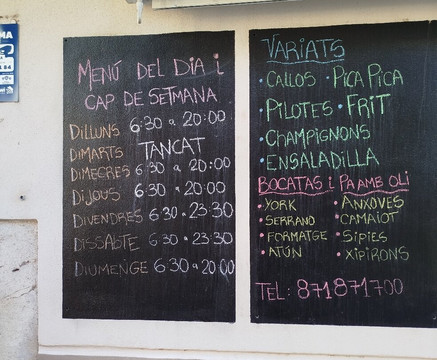 MENÚ DEL DIA i
CAP DE SETMANA
DILLUNS 6:30 a 20:00
DIMARTS TANCAT
DIMECRES 6:30 a 20:00
DIJOUS 6:30 a 20:00
DIVENDRES 6:30 a 23:30
DISSABTE 6:30 a 23:30
DIUMENGE 6:30 a 20:00
VARIATS
· CALLOS · PICA PICA
PILOTES · FRIT
· CHAMPIGNONS
· ENSALADILLA
BOCATAS i PA AMB OLI
· YORK · ANXOVES
· SERRANO · CAMAIOT
· FORMATGE · SIPIES
· ATÚN · XIPIRONS
TEL: 871871700